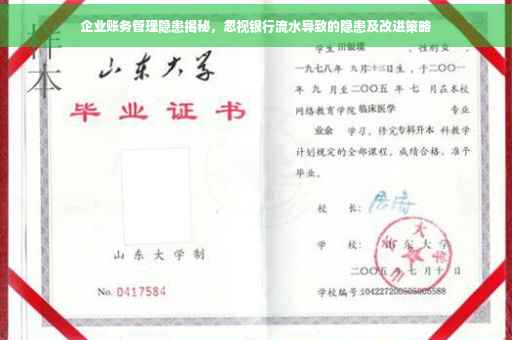 企业账务管理隐患揭秘，忽视银行流水导致的隐患及改进策略
样本
山东大学
毕业证书
山东大学制
No. 0417584
学生 田银璞 ，性别 女 ，
一九七八年 九月十三日生，于二〇〇一
年 九 月至二〇〇五 年 七 月在本校
网络教育学院 临床医学 专业
业余 学习，修完专科升本科教学
计划规定的全部课程，成绩合格，准予
毕业。
校 长：
学 校： 山东大学
二〇〇五 年 七 月 十 日
学校编号:104227200505005588